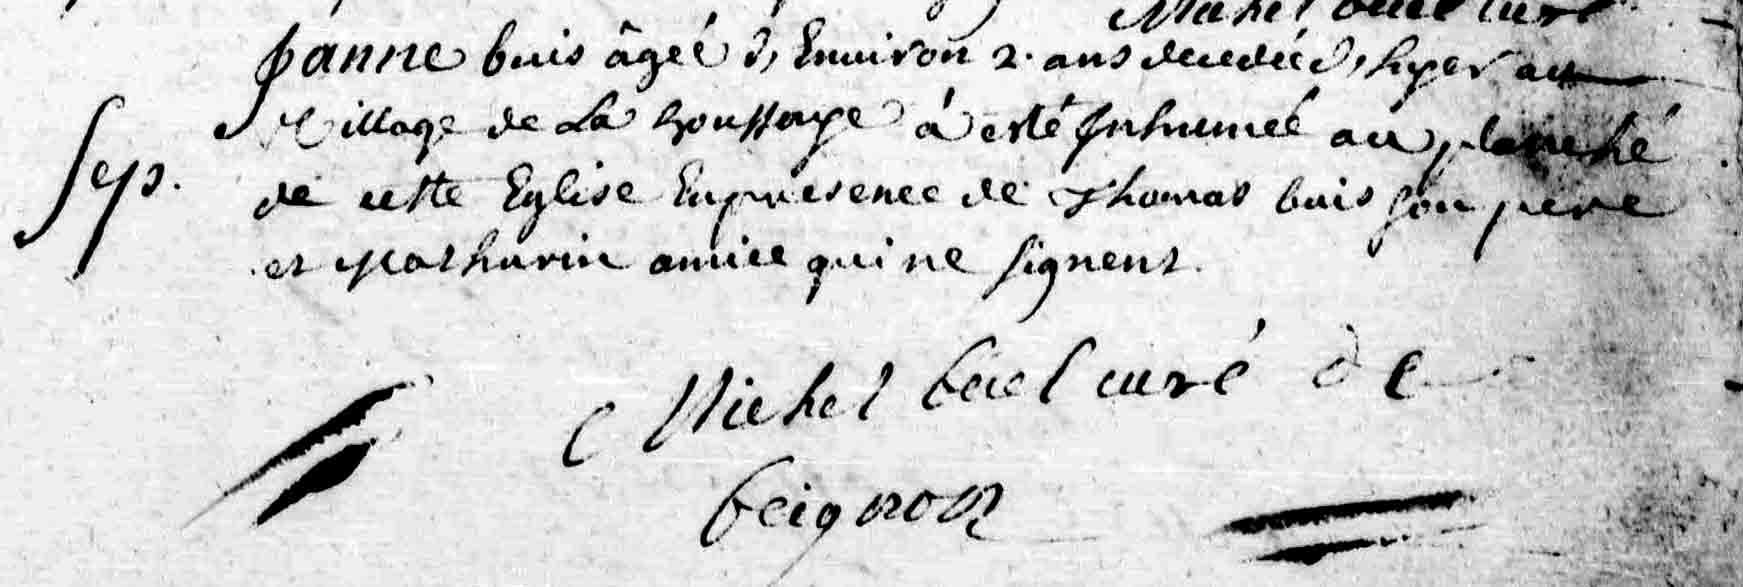 Michel buel curé
Janne buis âgéé d, Environ 2. ans decedéé, hyer au
Village de La houssaye à esté Inhumeé au planché
Sep. de cette Eglise En presence de Thomas buis son pere
et Mathurin amice qui ne signent.
Michel buel curé de
beignon